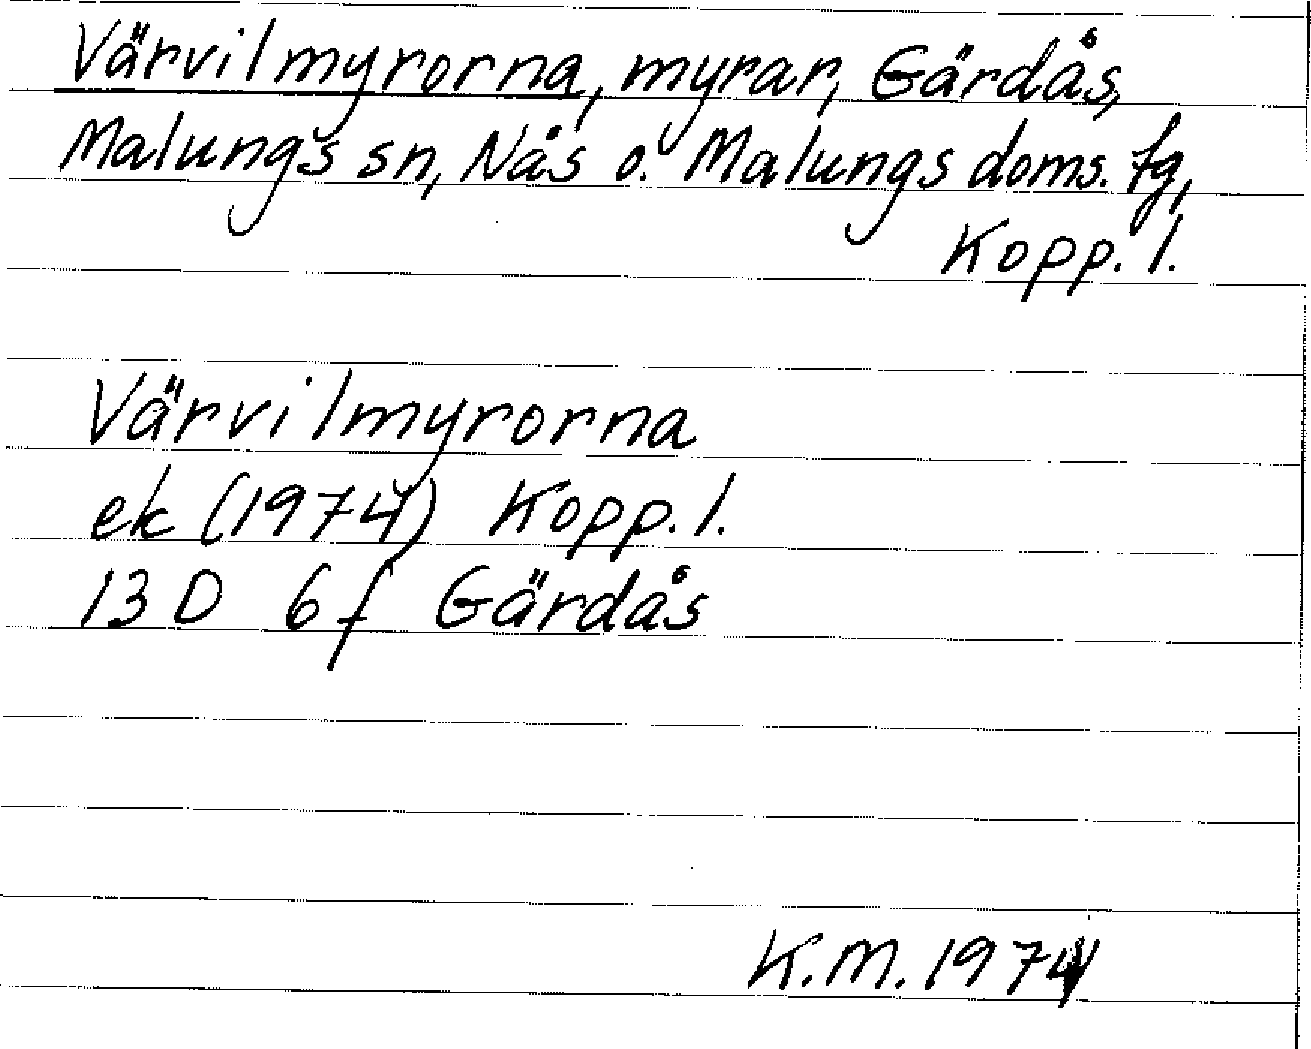 Värvilmyrorna, myrar, Gärdås,
Malungs sn, Nås o. Malungs doms. fg,
Kopp. l.
Värvilmyrorna
ek (1974) Kopp. l.
13 D 6 f Gärdås
K.M. 1974